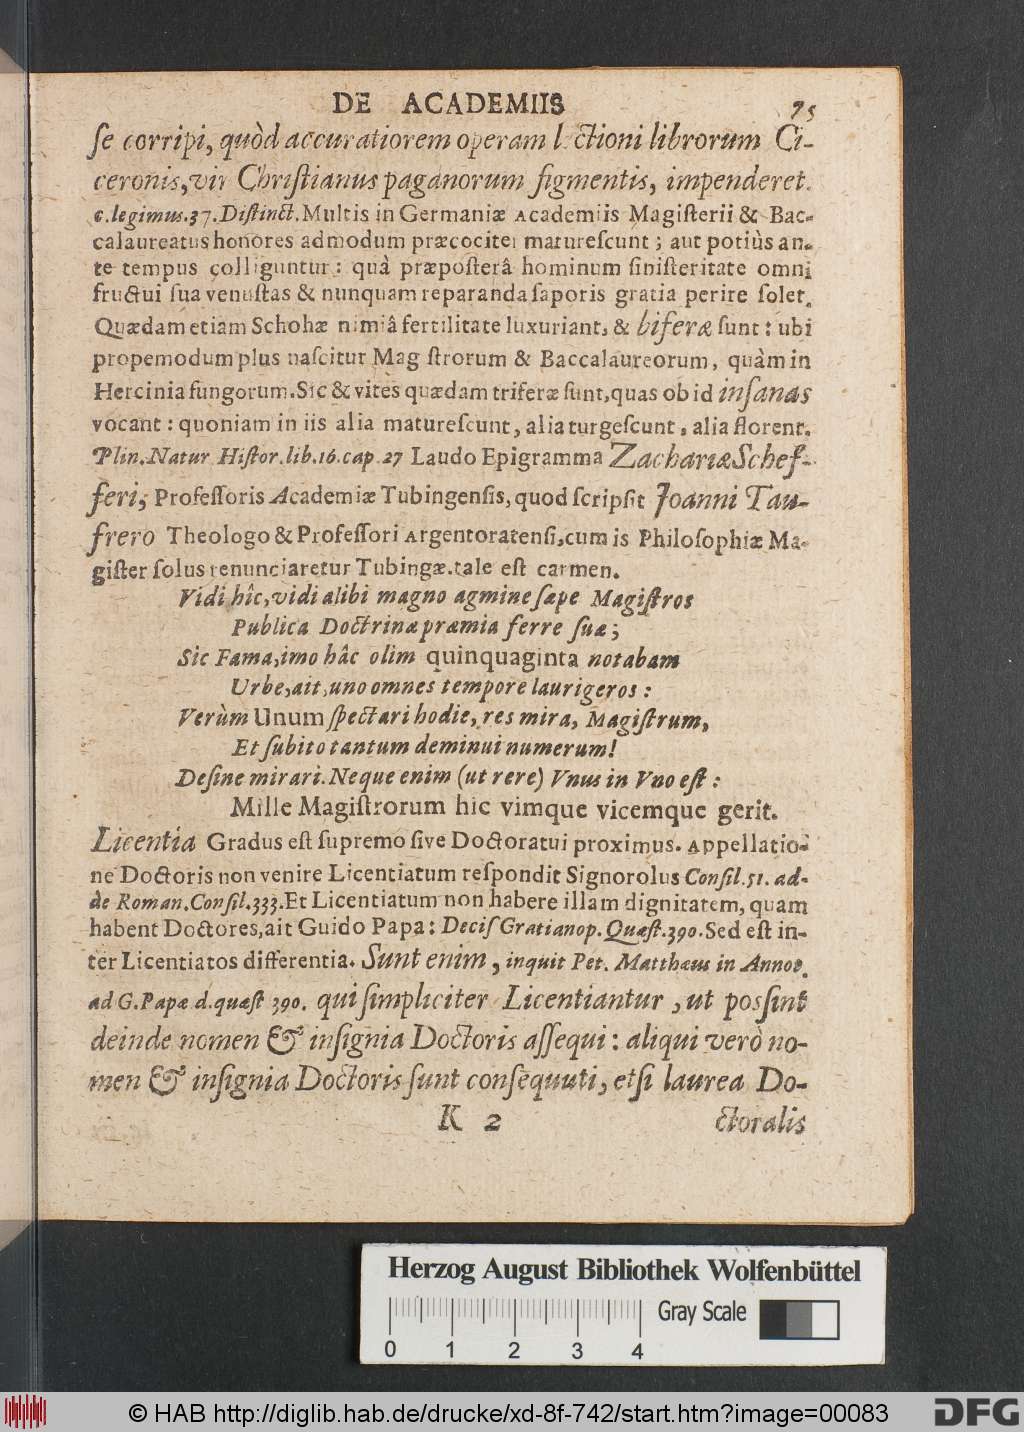 DE ACADEMIIS 75
ſe corripi, quòd accuratiorem operam lectioni librorum Ci-
ceronis, vir Chriſtianus paganorum figmentis, impenderet.
c. legimus. 37. Diſtinct. Multis in Germaniæ Academiis Magiſterii & Bac-
calaureatus honores admodum præcociter matureſcunt; aut potiùs an-
te tempus colliguntur: quà præpoſterâ hominum ſiniſteritate omni
fructui ſua venuſtas & nunquam reparanda ſaporis gratia perire ſolet.
Quædam etiam Scholæ nimiâ fertilitate luxuriant, & biferæ ſunt: ubi
propemodum plus naſcitur Magiſtrorum & Baccalaureorum, quàm in
Hercinia fungorum. Sic & vites quædam triferæ ſunt, quas ob id inſanas
vocant: quoniam in iis alia matureſcunt, alia turgeſcunt, alia florent.
Plin. Natur. Hiſtor. lib. 16. cap. 27 Laudo Epigramma Zachariæ Schef-
feri, Profeſſoris Academiæ Tubingenſis, quod ſcripſit Joanni Tau-
frero Theologo & Profeſſori Argentoratenſi, cum is Philoſophiæ Ma-
giſter ſolus renunciaretur Tubingæ. tale eſt carmen.
Vidi hîc, vidi alibi magno agmine ſæpe Magiſtros
Publica Doctrinæ præmia ferre ſuæ;
Sic Fama, imo hâc olim quinquaginta notabam
Urbe, ait, uno omnes tempore laurigeros:
Verùm Unum ſpectari hodie, res mira, Magiſtrum,
Et ſubito tantum deminui numerum!
Deſine mirari. Neque enim (ut rere) Vnus in Vno eſt:
Mille Magiſtrorum hic vimque vicemque gerit.
Licentia Gradus eſt ſupremo ſive Doctoratui proximus. Appellatio-
ne Doctoris non venire Licentiatum reſpondit Signorolus Conſil. 51. ad-
de Roman. Conſil. 333. Et Licentiatum non habere illam dignitatem, quam
habent Doctores, ait Guido Papa: Deciſ Gratianop. Quæſt. 390. Sed eſt in-
ter Licentiatos differentia. Sunt enim, inquit Pet. Matthæus in Annot.
ad G. Papæ d. quæſt 390. qui ſimpliciter Licentiantur, ut poſſint
deinde nomen & inſignia Doctoris aſſequi: aliqui verò no-
men & inſignia Doctoris ſunt conſequuti, etſi laurea Do-
K 2 ctoralis
Herzog August Bibliothek Wolfenbüttel
Gray Scale
0 1 2 3 4
© HAB http://diglib.hab.de/drucke/xd-8f-742/start.htm?image=00083
DFG